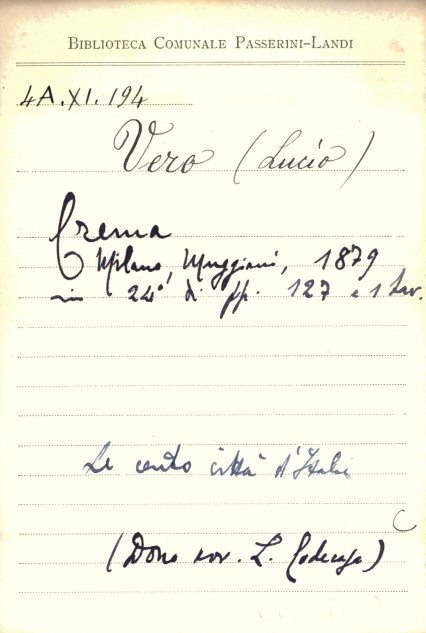 BIBLIOTECA COMUNALE PASSERINI-LANDI
4A.XI.194
Vero (Lucio)
Crema
Milano, Muggiani, 1879
in 24° di pp. 127 e 1 tav.
Le cento città d'Italia
(Dono L.